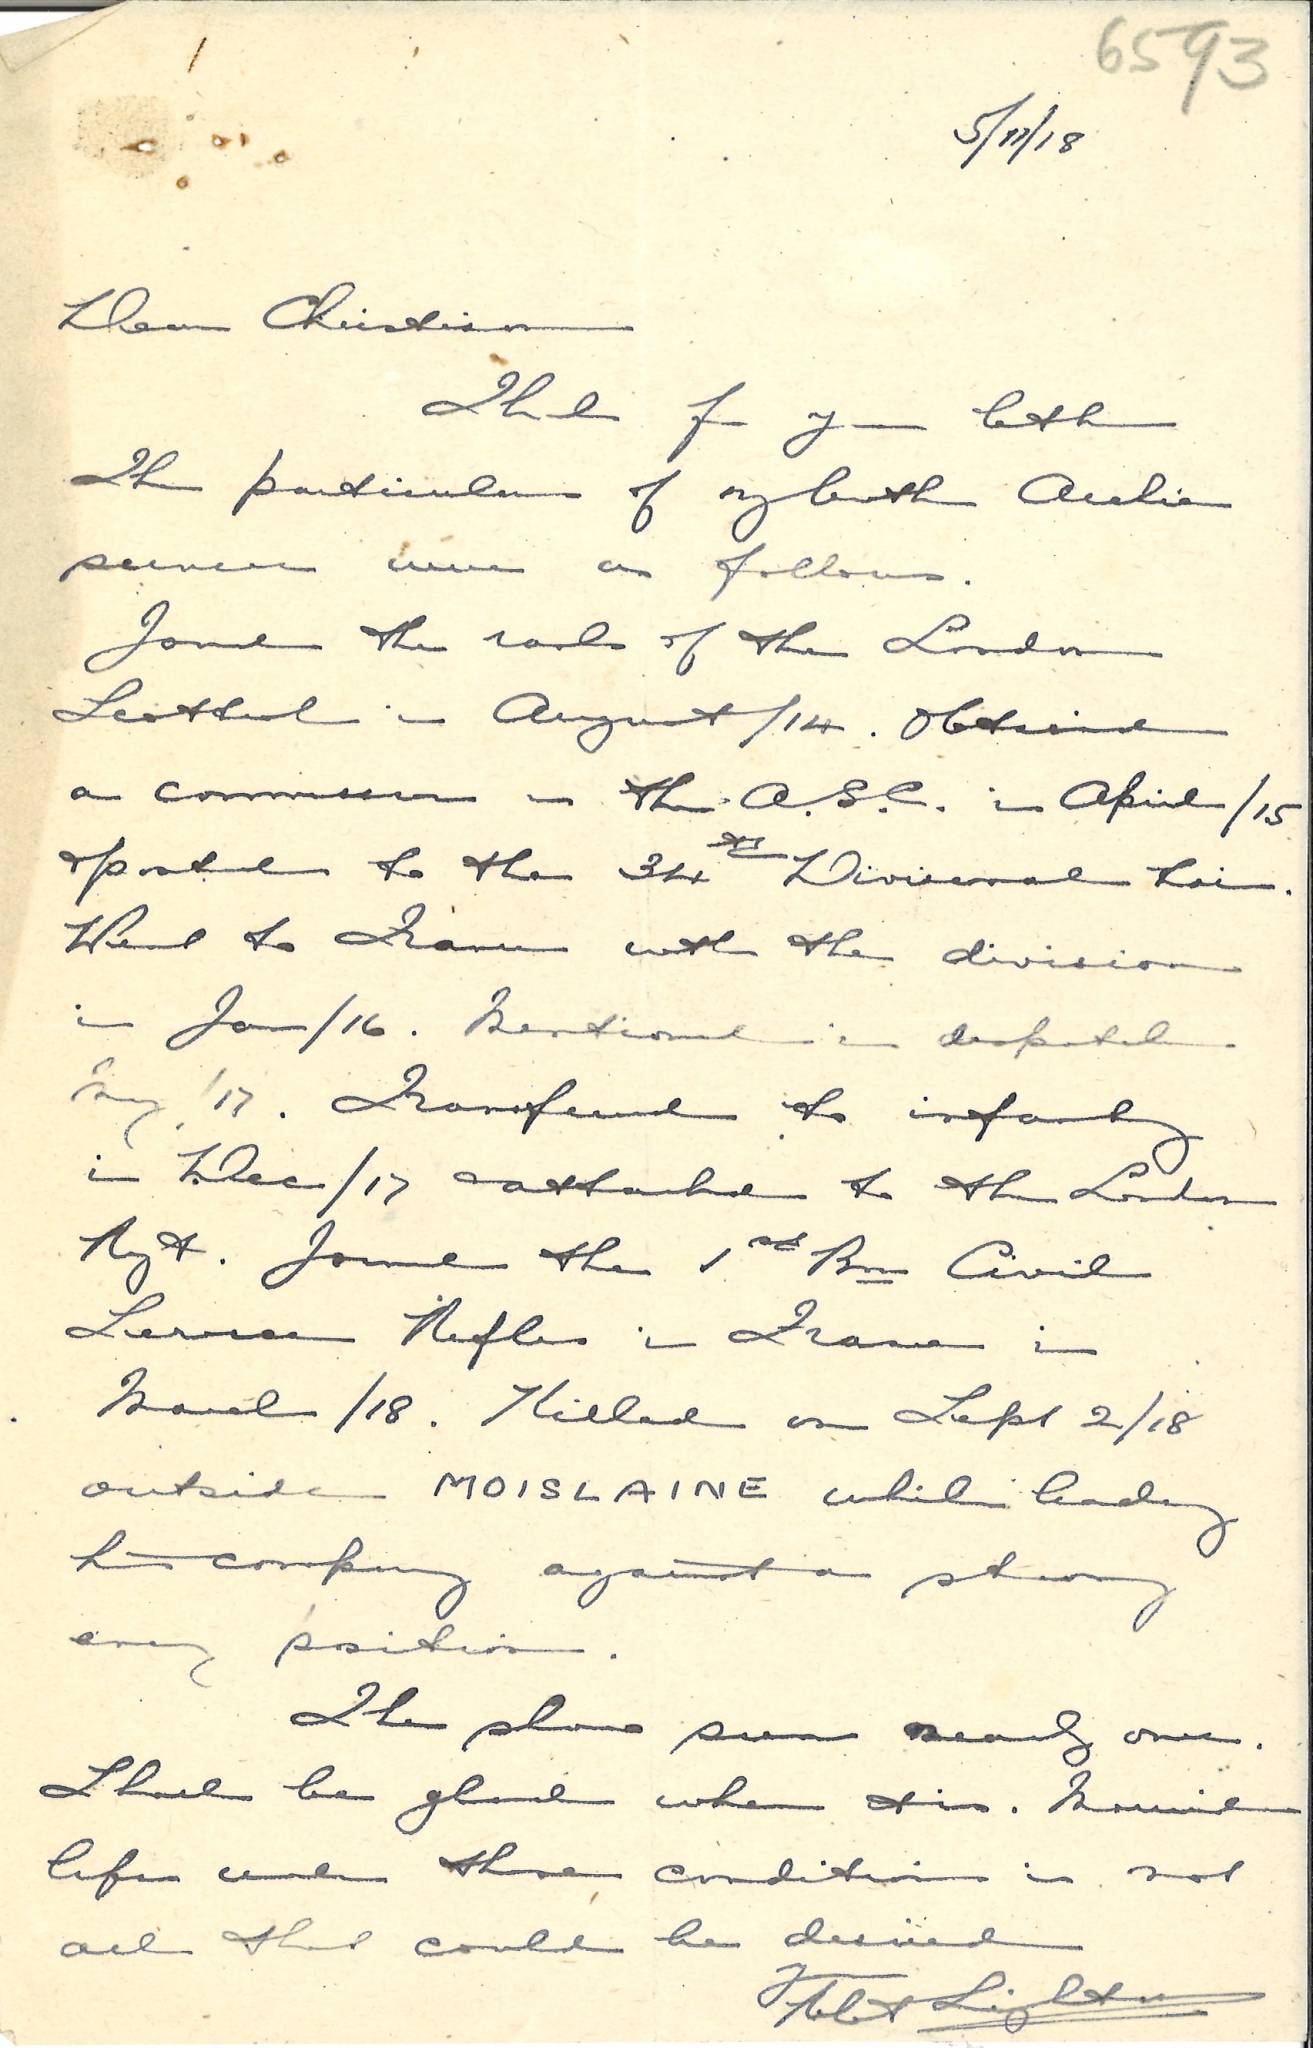 6593
5/11/18
Dear Christison
Thanks for your letter
The particulars of my brother Archie
services were as follows.
Joined the ranks of the London
Scottish in August/14. Obtained
a commission in the A.S.C. in April/15
& posted to the 34th Divisional train.
Went to France with the division
in Jan/16. Mentioned in despatches
May/17. Transferred to infantry
in Dec/17 & attached to the London
Regt. Joined the 1st Bn Civil
Service Rifles in France in
March/18. Killed on Sept 2/18
outside MOISLAINE while leading
his company against a strong
enemy position.
The show seems nearly over.
Shall be glad when it is. Married
life under these conditions is not
all that could be desired